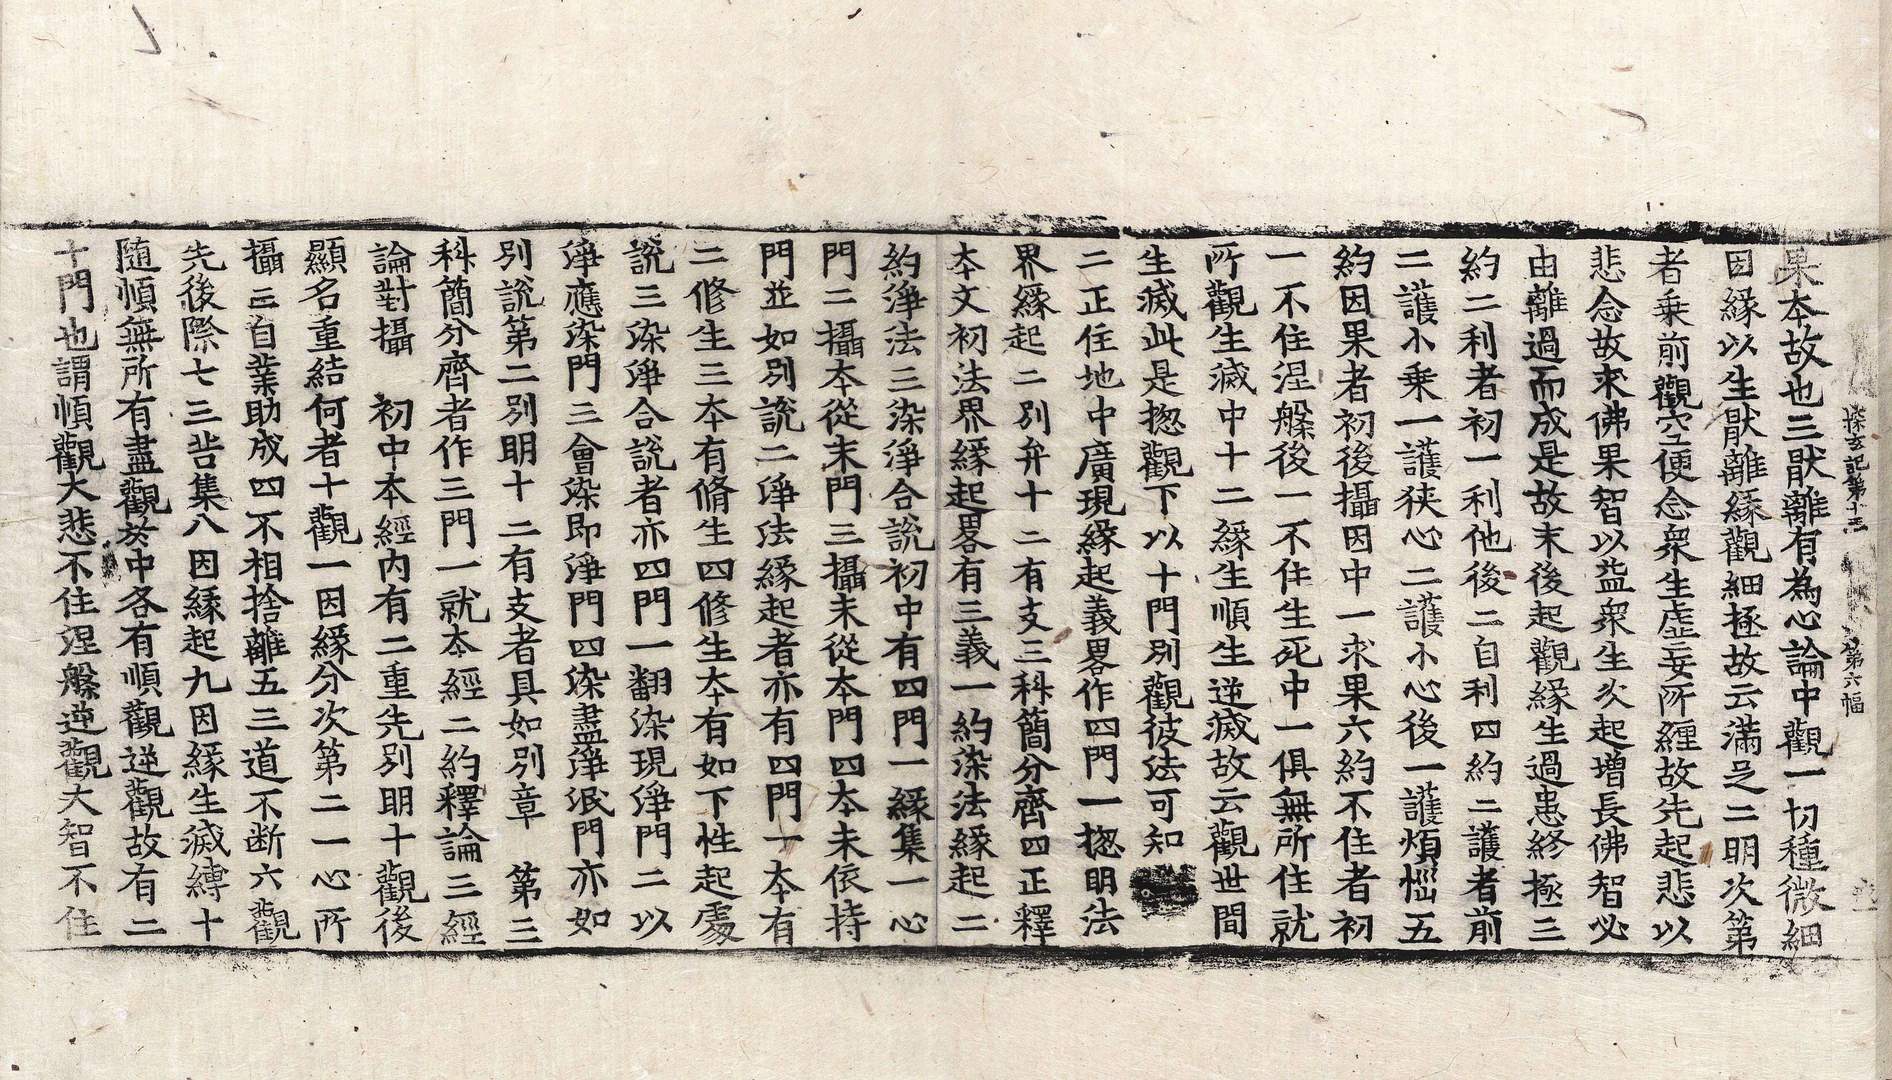 探玄記第十三　第六幅
果本故也三猒離有為心論中觀一切種微細
因縁以生猒離縁觀細極故云滿足二明次第
者乗前觀空便念衆生虚妄所纒故先起悲以
悲念故求佛果智以益衆生次起增長佛智必
由離過而成是故末後起觀縁生過患終極三
約二利者初一利他後二自利四約二護者前
二護小乗一護狹心二護小心後一護煩惱五
約因果者初後攝因中一求果六約不住者初
一不住涅槃後一不住生死中一俱無所住就
所觀生滅中十二縁生順生逆滅故云觀世間
生滅此是揔觀下以十門別觀彼法可知
二正住地中廣現縁起義畧作四門一揔明法
界縁起二別弁十二有支三科簡分齊四正釋
本文初法界縁起畧有三義一約染法縁起二
約淨法三染淨合說初中有四門一縁集一心
門二攝本從末門三攝末從本門四本末依持
門並如別說二淨法縁起者亦有四門一本有
二修生三本有脩生四修生本有如下性起處
說三染淨合說者亦四門一翻染現淨門二以
淨應染門三會染即淨門四染盡淨泯門亦如
別說第二別明十二有支者具如別章　第三
科簡分齊者作三門一就本經二約釋論三經
論對攝　初中本經内有二重先別明十觀後
顯名重結何者十觀一因縁分次第二一心所
攝三自業助成四不相捨離五三道不断六觀
先後際七三苦集八因縁起九因縁生滅縛十
随順無所有盡觀於中各有順觀逆觀故有二
十門也謂順觀大悲不住涅槃逆觀大智不住